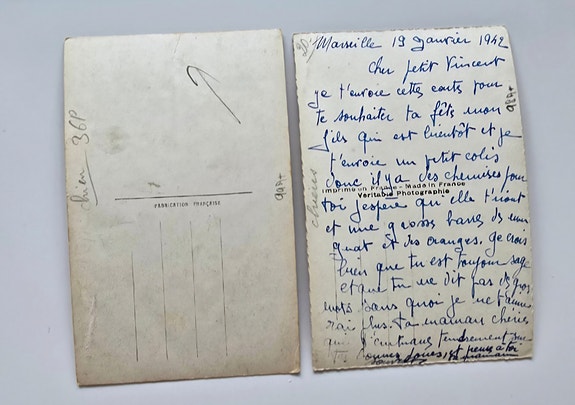 chien 36P
FABRICATION FRANÇAISE
Marseille 19 Janvier 1942
Cher petit Vincent
je t'envoie cette carte pour
te souhaiter ta fête mon
fils qui est bientôt et je
t'envoie un petit colis
donc il y a des chemises pour
Imprimé en France - Made in France
Veritable Photographie
toi j'espère qu'elle t'iront
et une grosse barre de nou
guat et des oranges. je crois
bien que tu est toujour sage
et que tu ne dit pas de gros
mots sans quoi je ne t'aime
rai plus. ta maman chérie
qui t'embrasse tendrement
chiens